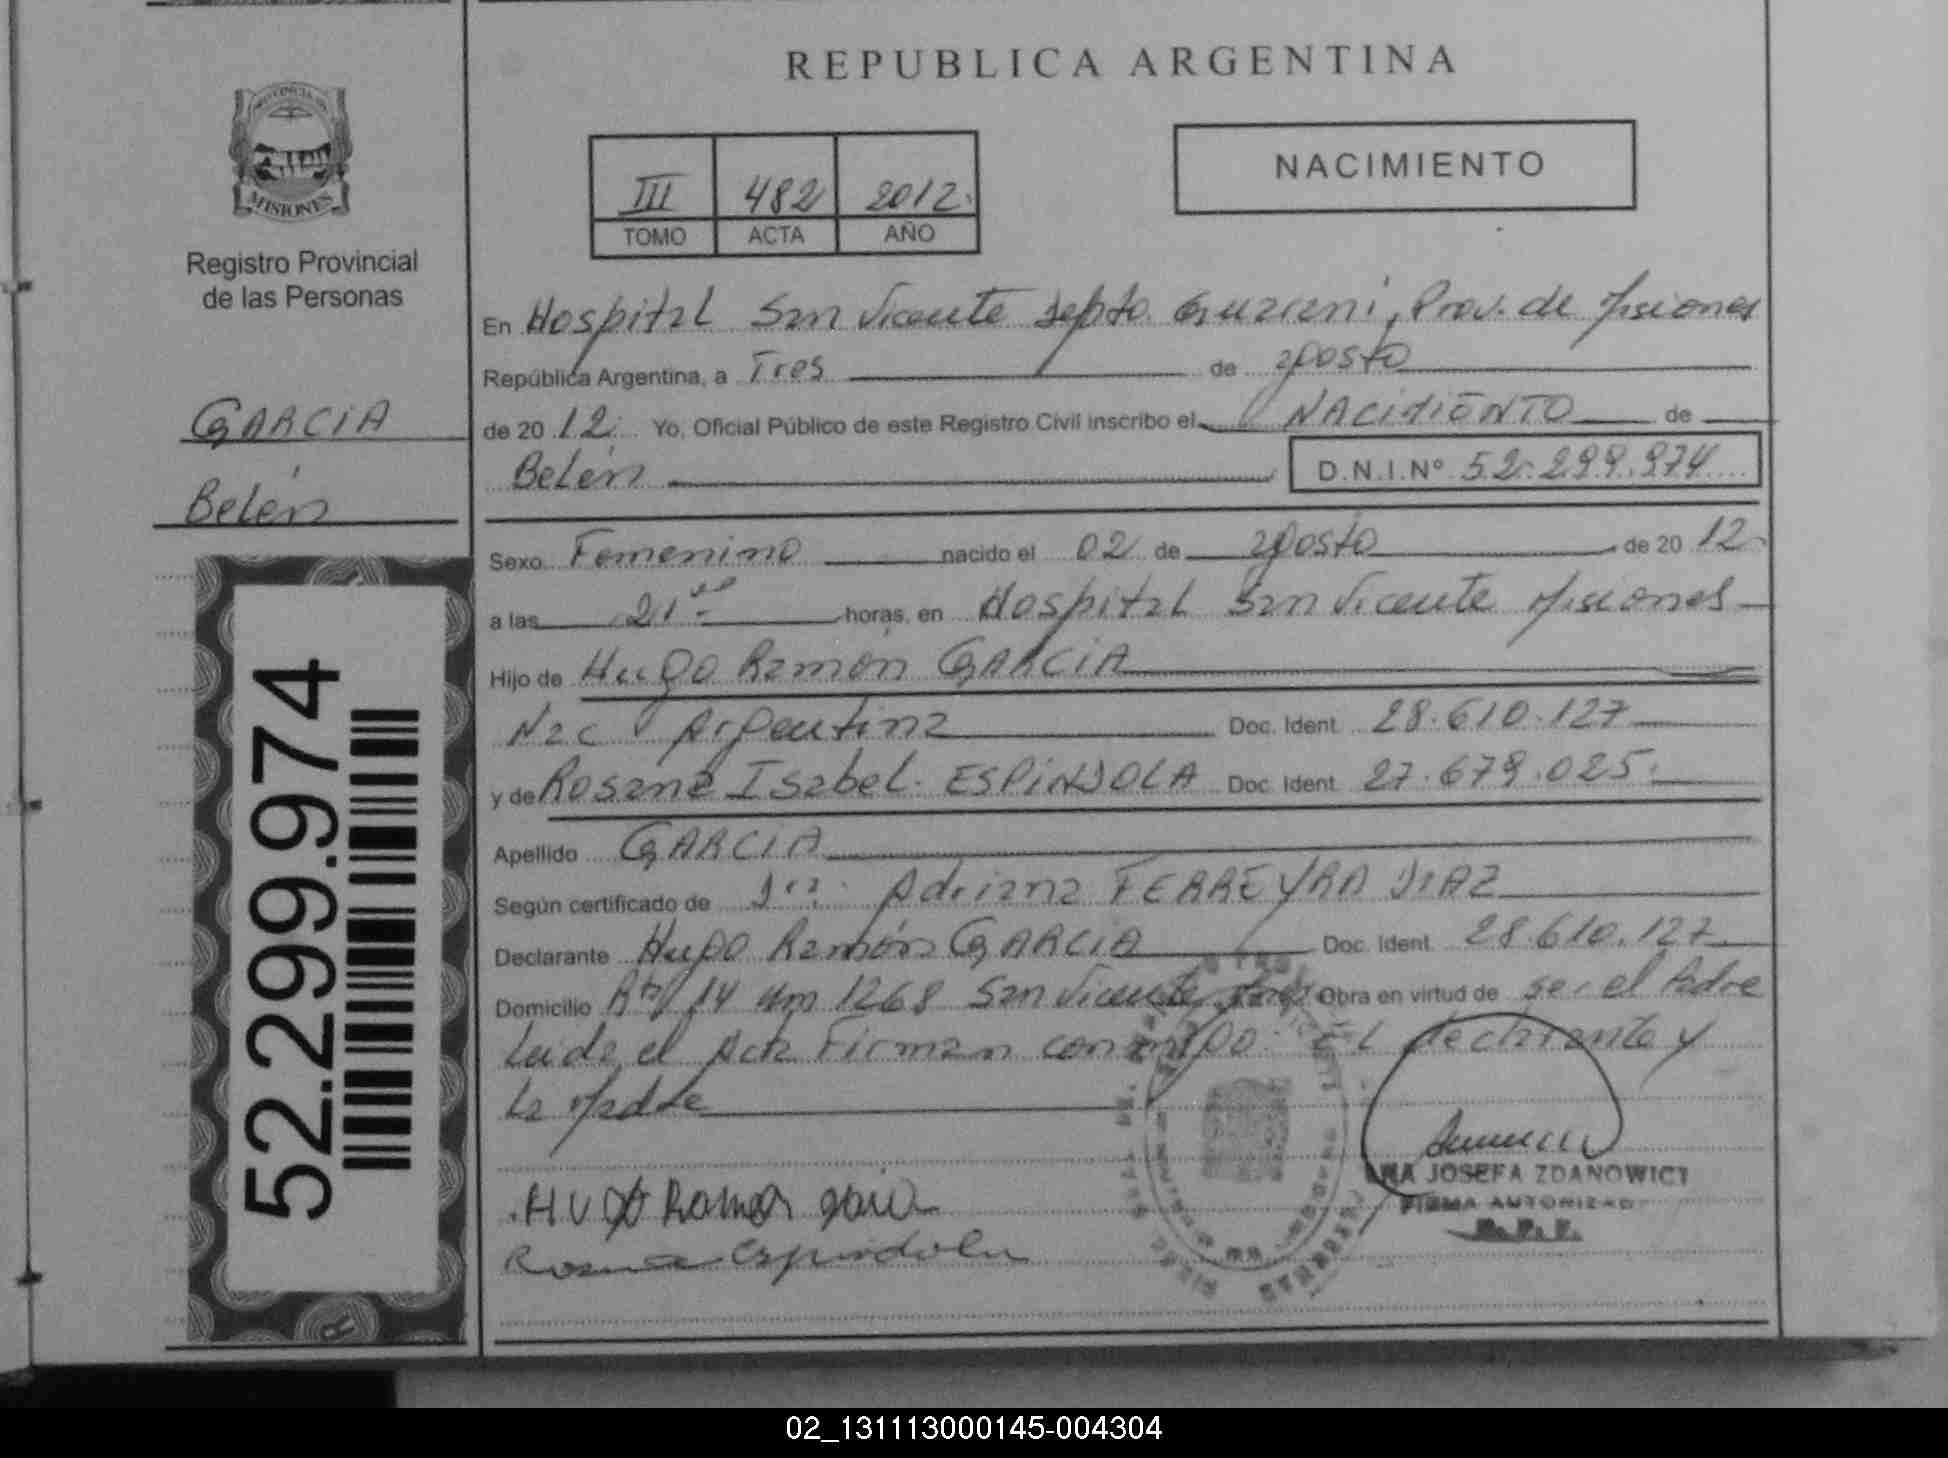 REPUBLICA ARGENTINA
PROVINCIA DE
MISIONES
Registro Provincial
de las Personas
III 482 2012.
TOMO ACTA AÑO
NACIMIENTO
En Hospital San Vicente Depto. Guarani, Prov. de Misiones
República Argentina, a Tres de agosto
de 20 12. Yo, Oficial Público de este Registro Civil inscribo el NACIMIENTO de
Belén D.N.I.Nº 52.299.974
GARCIA
Belén
Sexo Femenino nacido el 02 de agosto de 20 12.
a las 21 horas, en Hospital San Vicente Misiones
Hijo de Hugo Ramón GARCIA
Nac Argentina Doc. Ident. 28.610.127
y de Rosana Isabel. ESPINDOLA Doc. Ident. 27.679.025.
Apellido GARCIA
Según certificado de Dra. Adriana FERREYRA DIAZ
Declarante Hugo Ramón GARCIA Doc. Ident. 28.610.127
Domicilio Rta 14 Km 1268 San Vicente Obra en virtud de ser el Padre
Leida el Acta Firman conmigo. El declarante y
la Madre
52.299.974
Hugo Ramon
Rosana Espindola
JOSEFA ZDANOWICZ
FIRMA AUTORIZADA
R.P.P.
02_131113000145-004304